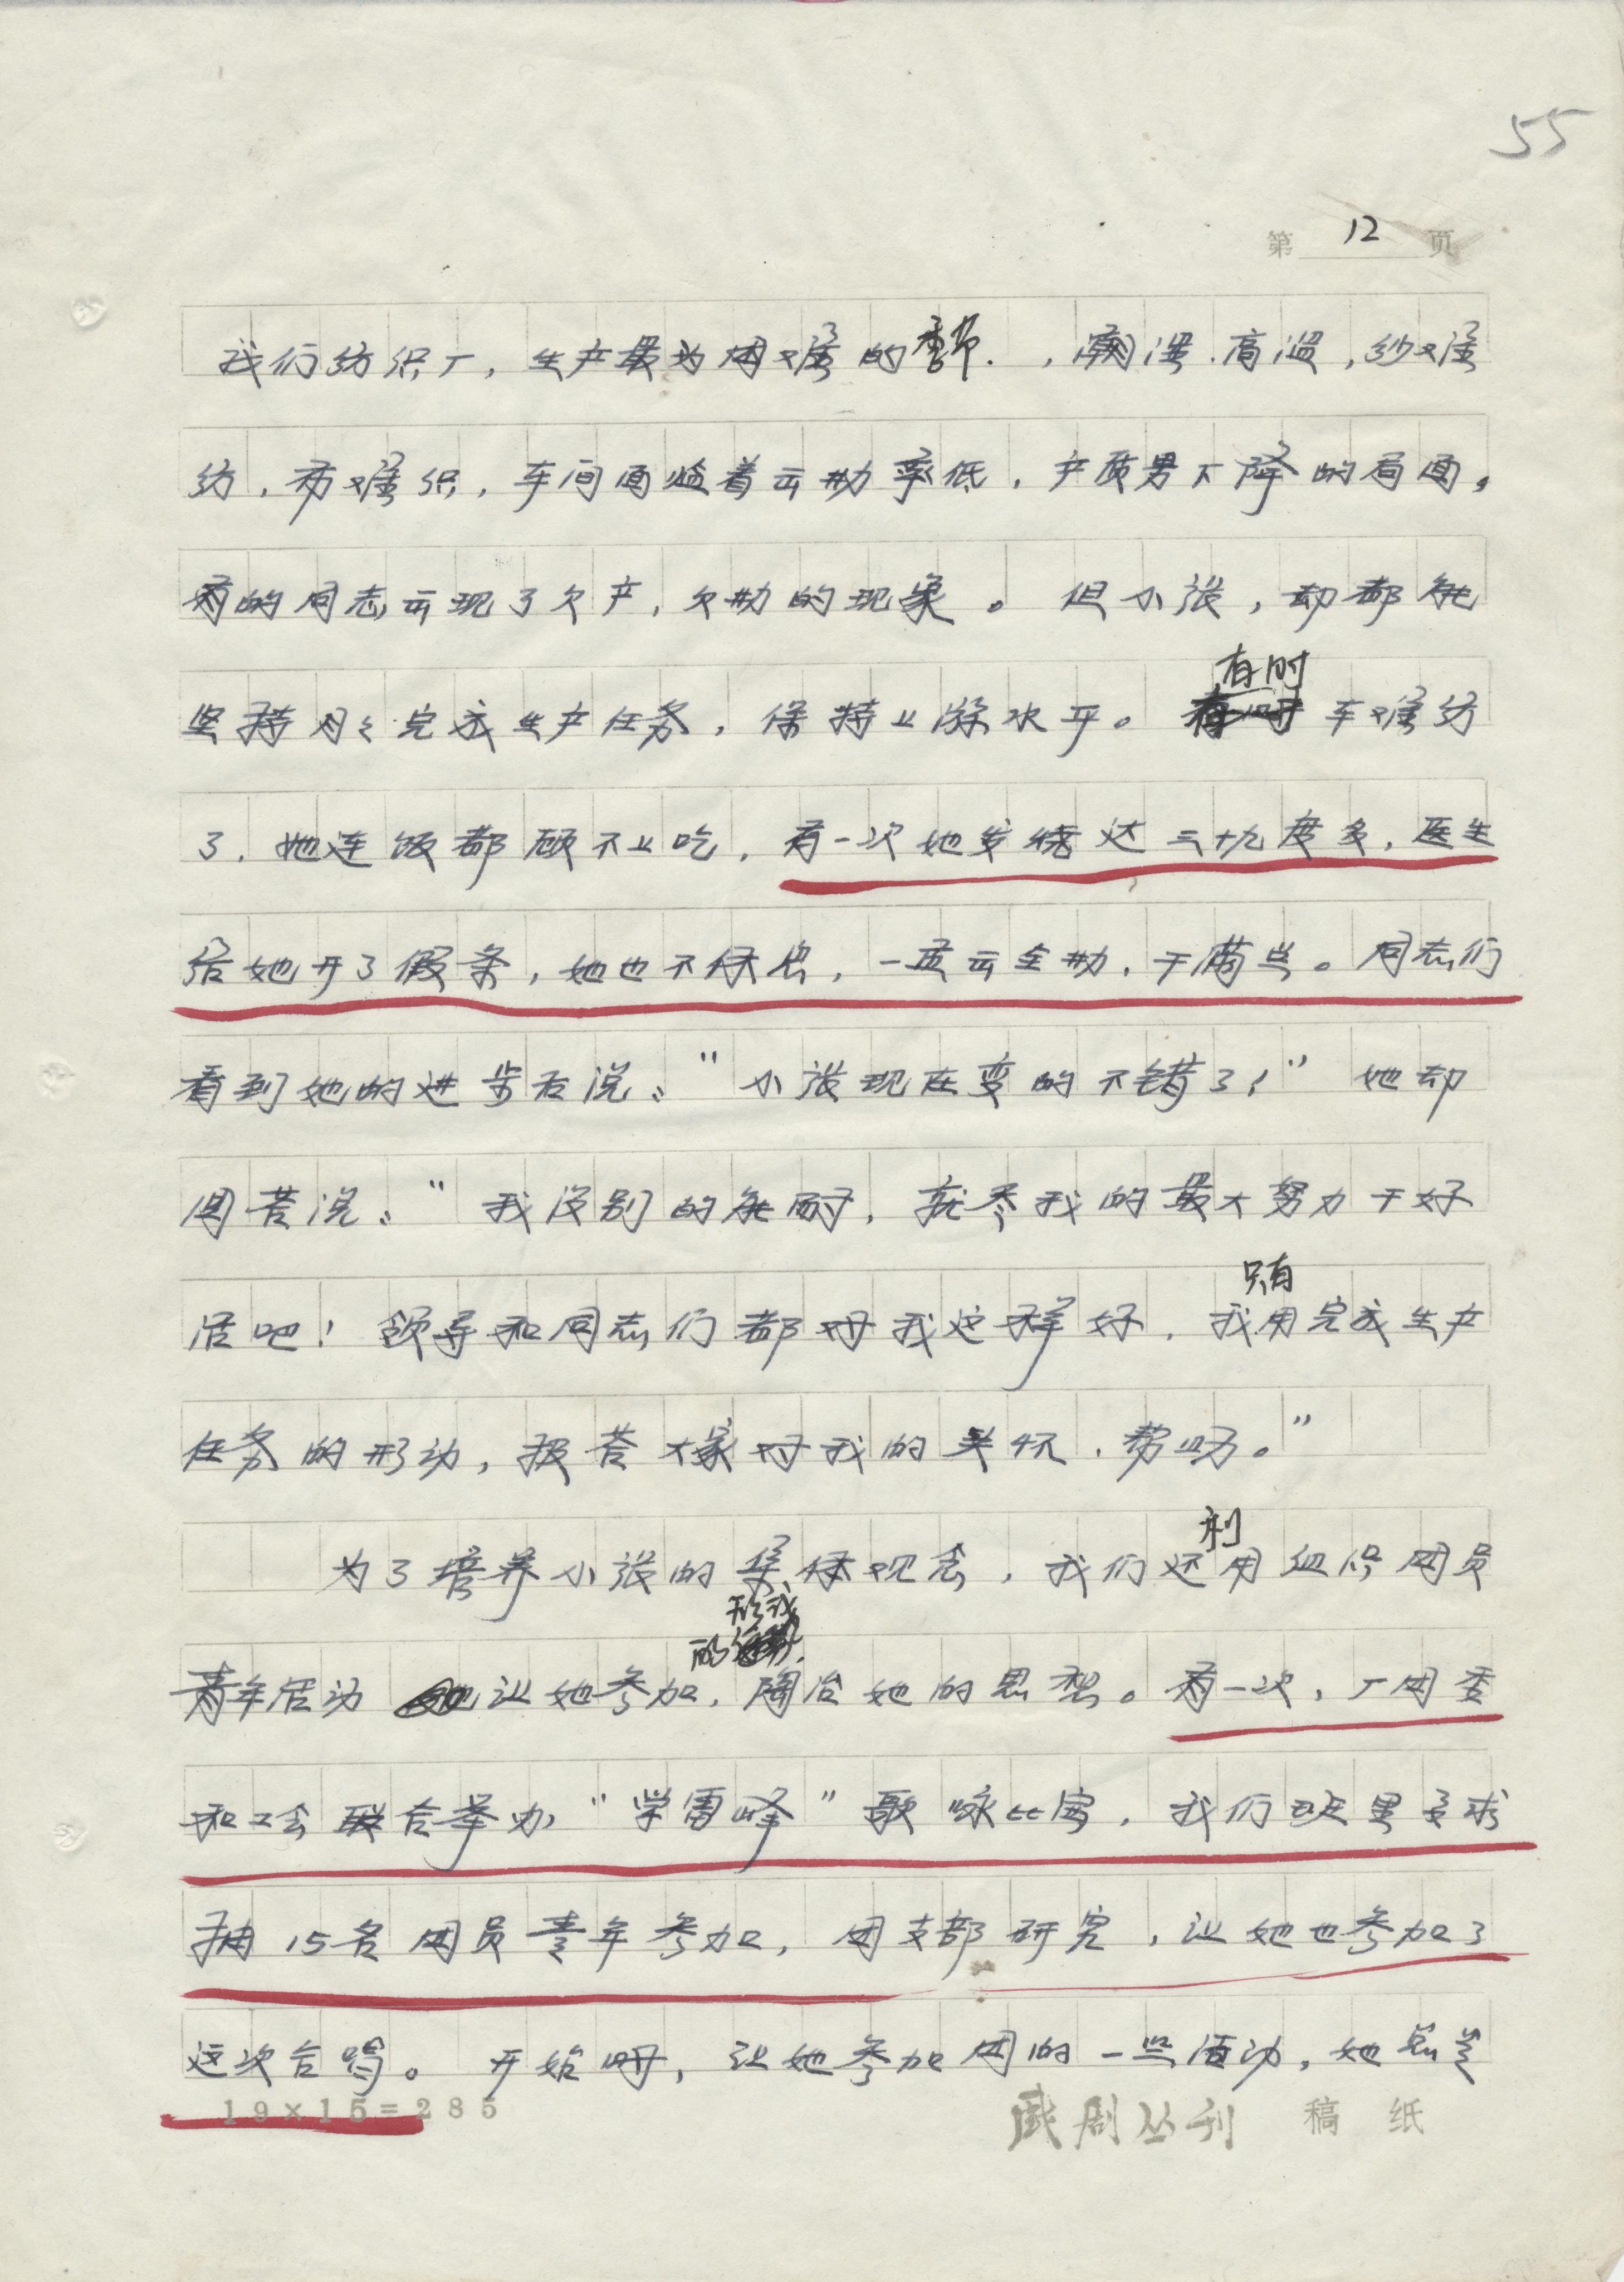 55
第 12 页
我们纺织厂，生产最为困难的季节．，潮湿．高温，纱难
纺，布难织，车间面临着云勤率低，产质男下降的局面。
有的同志云现了欠产，欠勤的现象。但小张，却都能
有时
坚持月々完成生产任务，保持上游水平。车难纺
了．她连饭都顾不上吃，有一次她发烧达三十九度多，医生
给她开了假条，她也不休息，一直云全勤，干满点。同志们
看到她的进步后说："小张现在变的不错了！"她却
回荅说："我没别的能耐，就尽我的最大努力干好
只有
活吧！领导和同志们都对我这样好，我用完成生产
任务的形动，报荅大家对我的关怀．帮助。"
利
为了培养小张的集体观念，我们还用组织团员
形式
的
青年活动让她参加，陶冶她的思想。有一次，厂团委
和工会联合举办"学雷峰"歌咏比赛，我们班里要求
抽15名团员青年参加，团支部研究，让她也参加了
这次合唱。开始时，让她参加团的一些活动，她总是
19×15=285
戚剧丛刊 稿 纸